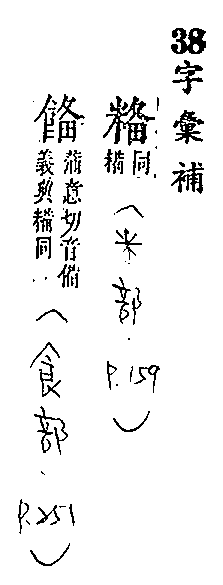 38字彙補
同
糒
（米部．P.159）
蒲意切音備
義與糒同
（食部．P.251）